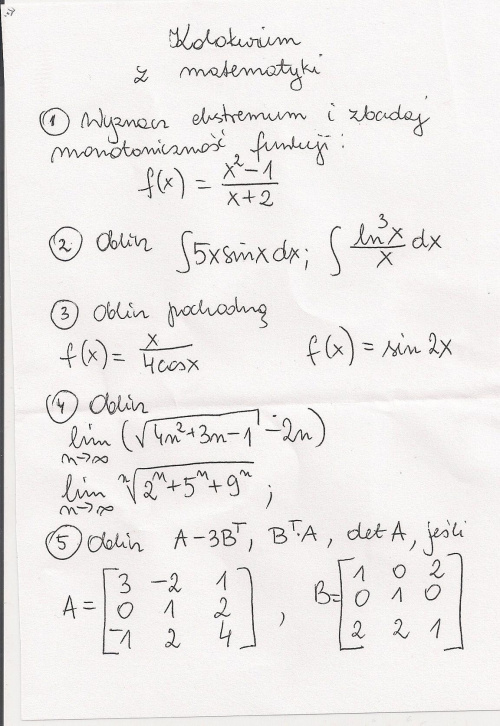 Kolokwium
z matematyki
① Wyznacz ekstremum i zbadaj
monotoniczność funkcji:
f(x) = (x²-1)/(x+2)
② Oblicz ∫5x sinx dx; ∫ (ln³x)/x dx
③ Oblicz pochodną
f(x) = x/(4cosx)    f(x) = sin 2x
④ Oblicz
lim n→∞ (√(4n²+3n-1) - 2n)
lim n→∞ ⁿ√(2ⁿ+5ⁿ+9ⁿ) ;
⑤ Oblicz A-3Bᵀ, Bᵀ·A, det A, jeśli
A = [3 -2 1; 0 1 2; -1 2 4], B = [1 0 2; 0 1 0; 2 2 1]